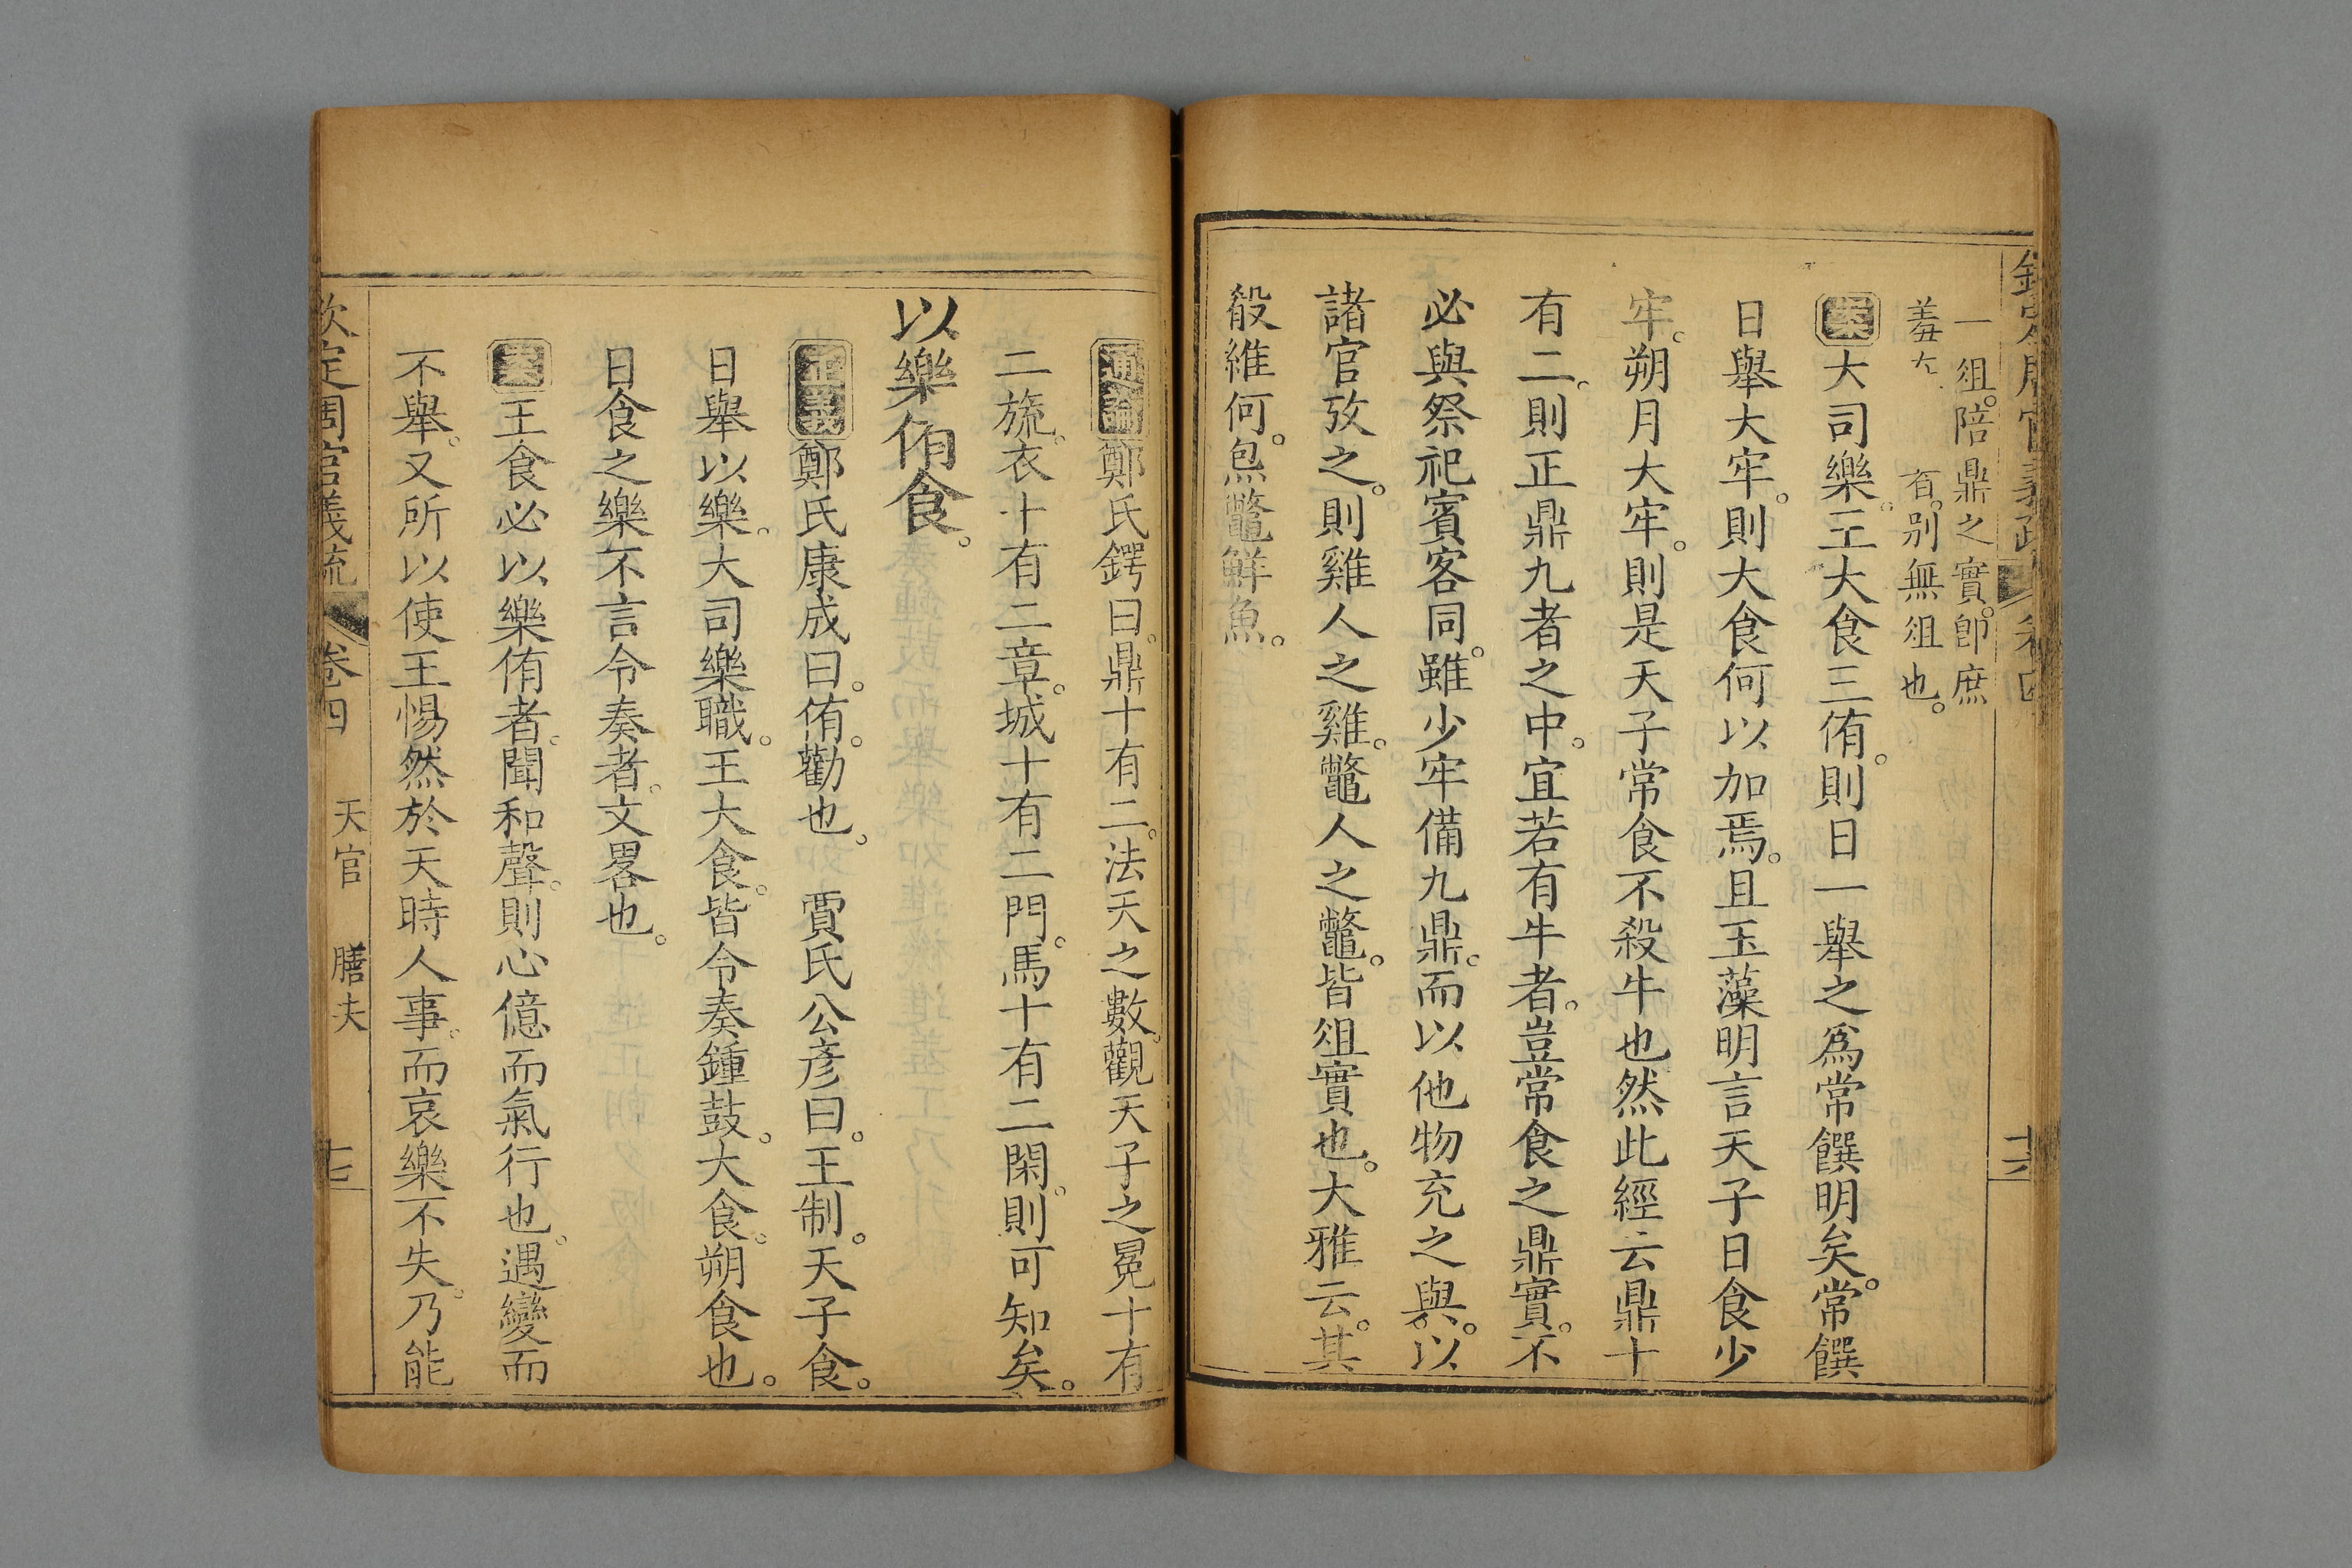 欽定周官義疏 卷四 十六
一俎。陪鼎之實。卽庶
羞。別無俎也。
案大司樂。王大食三侑。則日一舉之爲常饌明矣。常饌
日舉大牢。則大食何以加焉。且玉藻明言天子日食少
牢。朔月大牢。則是天子常食不殺牛也然此經云鼎十
有二。則正鼎九者之中。宜若有牛者。豈常食之鼎實。不
必與祭祀賓客同。雖少牢備九鼎。而以他物充之與。以
諸官攷之。則雞人之雞。鼈人之鼈。皆俎實也。大雅云。其
殽維何。炰鼈鮮魚。
通論鄭氏鍔曰。鼎十有二。法天之數。觀天子之冕十有
二旒。衣十有二章。城十有二門。馬十有二閑。則可知矣。
以樂侑食。
正義鄭氏康成曰。侑。勸也。 賈氏公彥曰。王制。天子食。
日舉以樂。大司樂職。王大食。皆令奏鍾鼓。大食。朔食也。
日食之樂不言令奏者。文畧也。
案王食必以樂侑者。聞和聲。則心億而氣行也。遇變而
不舉。又所以使王惕然於天時人事。而哀樂不失。乃能
欽定周官義疏 卷四 天官 膳夫 十七